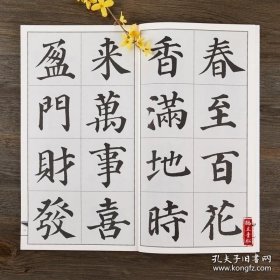 春至百花
香滿地時
来萬事喜
盈門財發
孔夫子旧书网